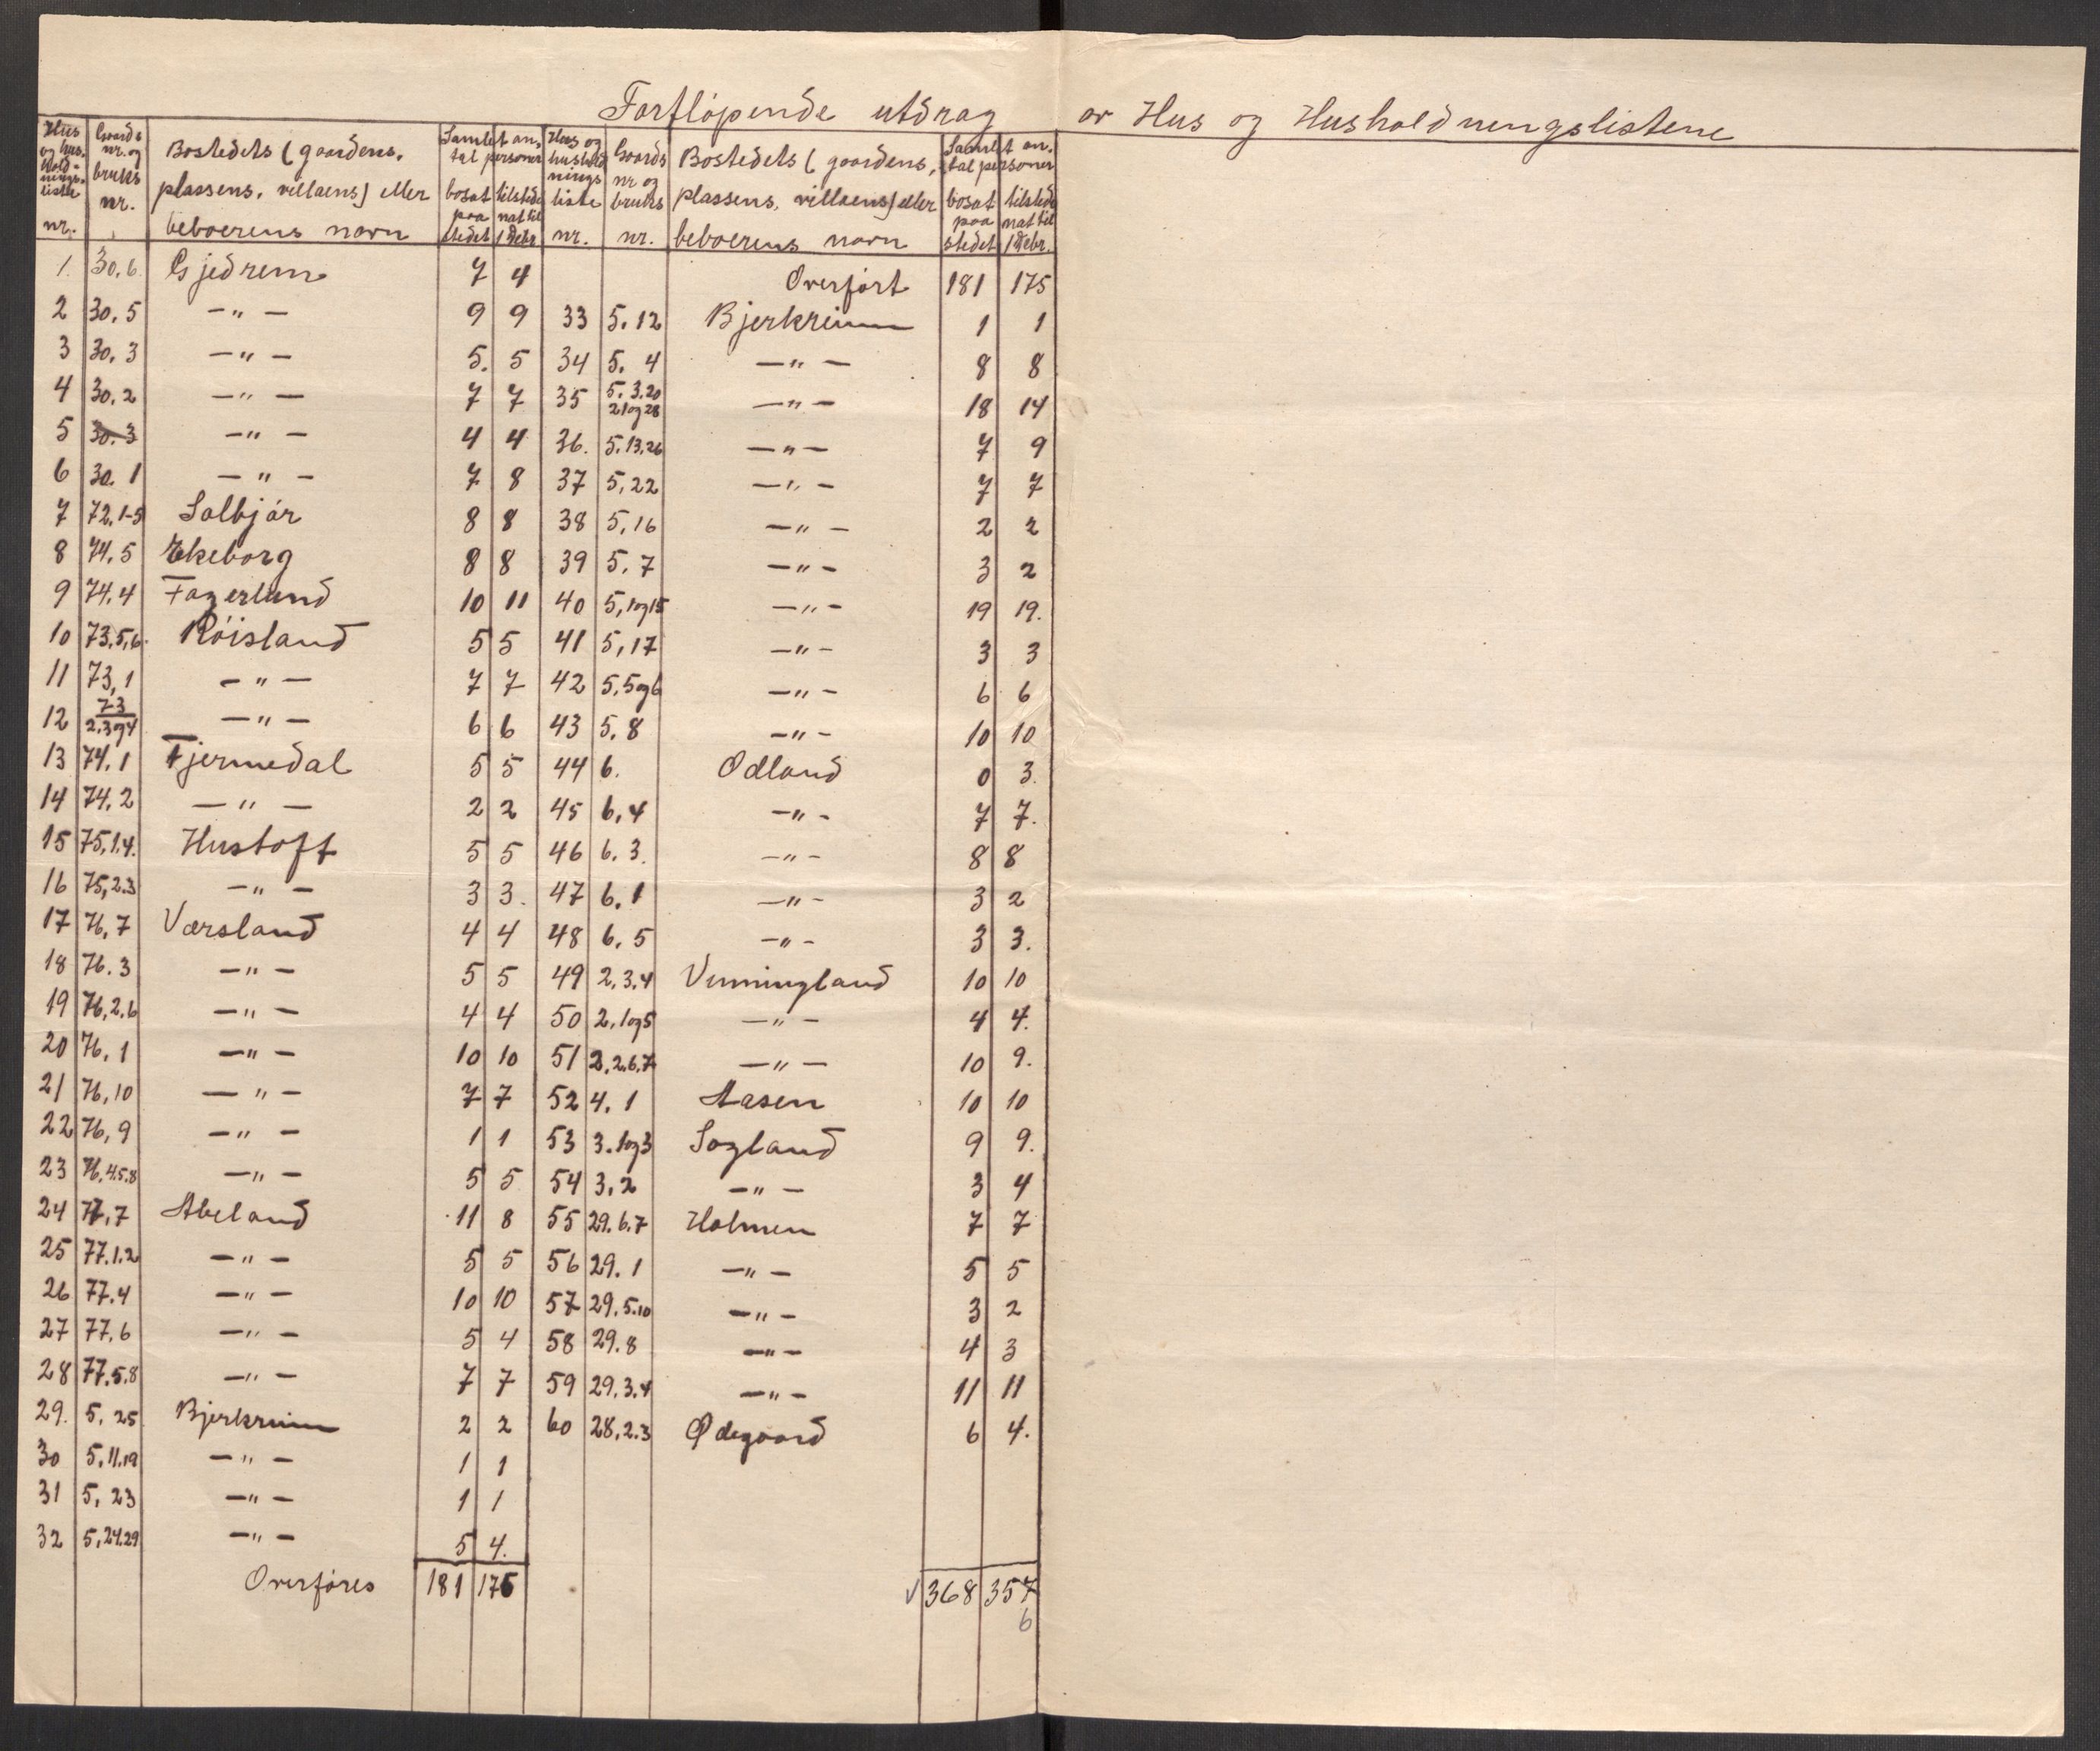 Fortløpende utdrag av Hus og Husholdningslistene
Hus og hus-hold-nings-liste nr. | Gaards nr. og bruks nr. | Bostedets (gaardens, plassens, villaens) eller beboerens navn | Samlet an-tal personer bosat paa stedet | tilstede nat til 1 Debr | Hus og hushold nings liste nr. | Gaards nr og bruks nr. | Bostedets (gaardens, plassens, villaens) eller beboerens navn | Samlet an-tal personer bosat paa stedet | tilstede nat til 1 Debr.
1. | 30.6 | Gjedrem | 7 | 4 | | | Overført | 181 | 175
2 | 30.5 | —„— | 9 | 9 | 33 | 5.12 | Bjerkreim | 1 | 1
3 | 30.3 | —„— | 5. | 5 | 34 | 5. 4 | —„— | 8 | 8
4 | 30.2 | —„— | 7 | 7 | 35 | 5.3.20 21 og 28 | —„— | 18 | 14
5 | 30.3 | —„— | 4 | 4 | 36. | 5.13.26 | —„— | 7 | 9
6 | 30.1 | —„— | 7 | 8 | 37 | 5,22 | —„— | 7 | 7
7 | 72,1-5 | Salbjør | 8 | 8 | 38 | 5,16 | —„— | 2 | 2
8 | 74.5 | Ekeborg | 8 | 8 | 39 | 5.7 | —„— | 3 | 2
9 | 74.4 | Fagerlund | 10 | 11 | 40 | 5,1og15 | —„— | 19 | 19.
10 | 73,5,6. | Røisland | 5 | 5 | 41 | 5,17 | —„— | 3 | 3
11 | 73,1 | —„— | 7 | 7 | 42 | 5.5og6 | —„— | 6 | 6
12 | 73 2.3og4 | —„— | 6 | 6 | 43 | 5.8 | —„— | 10 | 10
13 | 74.1 | Fjermedal | 5 | 5 | 44 | 6. | Odland | 0 | 3.
14 | 74.2 | —„— | 2 | 2 | 45 | 6,4 | —„— | 7 | 7.
15 | 75,1.4. | Hustoft | 5 | 5 | 46 | 6.3. | —„— | 8 | 8
16 | 75,2.3 | —„— | 3 | 3. | 47 | 6.1 | —„— | 3 | 2
17 | 76,7 | Værsland | 4 | 4 | 48 | 6.5 | —„— | 3 | 3.
18 | 76.3 | —„— | 5 | 5 | 49 | 2.3.4 | Vinningland | 10 | 10
19 | 76,2.6 | —„— | 4 | 4 | 50 | 2,1og5 | —„— | 4 | 4.
20 | 76,1 | —„— | 10 | 10 | 51 | 2.2.6.7 | —„— | 10 | 9.
21 | 76,10 | —„— | 7 | 7 | 52 | 4.1 | Aasen | 10 | 10
22 | 76,9 | —„— | 1 | 1 | 53 | 3.1og3 | Sogland | 9 | 9.
23 | 76.4.5.8 | —„— | 5 | 5 | 54 | 3.2 | —„— | 3 | 4
24 | 77,7 | Abeland | 11 | 8 | 55 | 29.6.7 | Holmen | 7 | 7
25 | 77.1.2 | —„— | 5 | 5 | 56 | 29.1 | —„— | 5 | 5
26 | 77.4 | —„— | 10 | 10 | 57 | 29.5.10 | —„— | 3 | 2
27 | 77.6 | —„— | 5 | 4 | 58 | 29.8 | —„— | 4 | 3
28 | 77.5.8 | —„— | 7 | 7 | 59 | 29.3.4 | —„— | 11 | 11
29. | 5.25 | Bjerkreim | 2 | 2 | 60 | 28.2.3 | Ødegaard | 6 | 4.
30 | 5.11.19 | —„— | 1 | 1
31 | 5.23 | —„— | 1 | 1
32 | 5,24.29 | —„— | 5 | 4.
Overføres | 181 | 175 | | | | | | √368 | 357
6